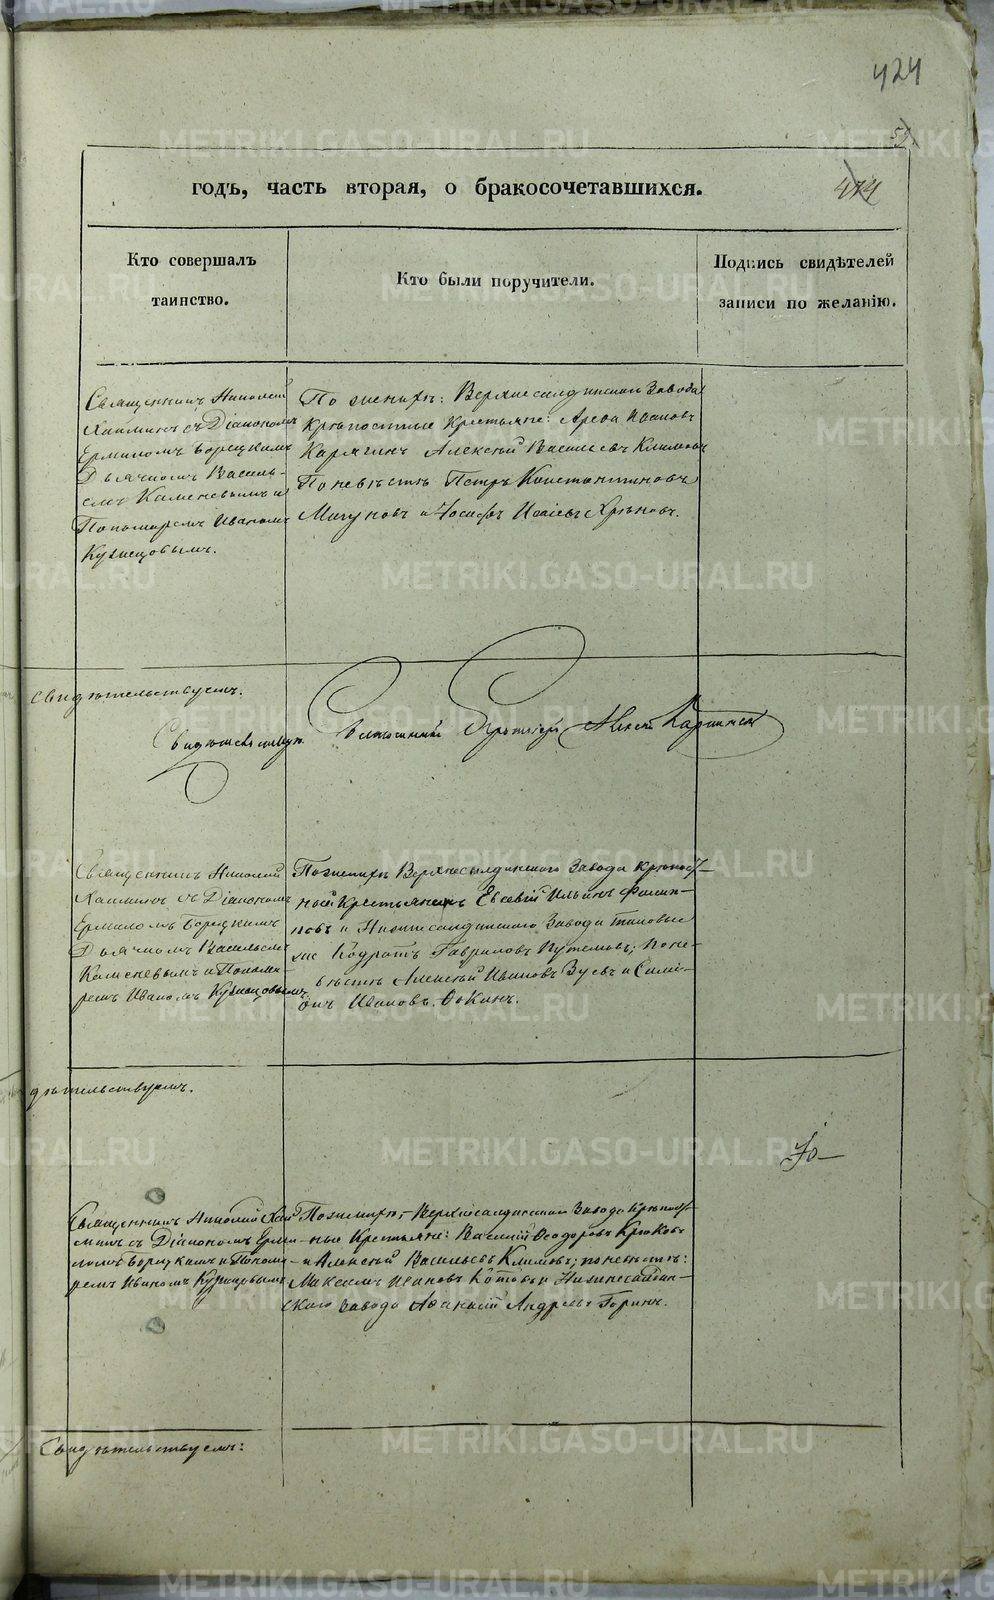 424
59
474
годъ, часть вторая, о бракосочетавшихся.
Кто совершалъ
таинство.
Кто были поручители.
Подпись свидѣтелей
записи по желанію.
Священникъ Николай
съ Діакономъ
Борецкимъ
Дьячкомъ Василь-
емъ Каменевымъ и
Пономаремъ Иваномъ
Кузнецовымъ.
По женихѣ: Верхнесалдинскаго Завода
Крѣпостные Крестьяне: Иванов
Карягинъ Алексѣй Васильевъ Климовъ
По невѣстѣ Петръ Константиновъ
и Іосифъ Исаевъ Хрѣновъ.
свидѣтельствуемъ.
Благочинный Алексѣй
Священникъ Николай
съ Діакономъ
Борецкимъ
Дьячкомъ Васильемъ
Каменевымъ и Понома-
ремъ Иваномъ Кузнецовымъ
По женихѣ Верхнесалдинскаго Завода Крѣпост-
ной Крестьянинъ Евсевій Ильинъ Филип-
повъ и Нижнесалдинскаго Завода таковые
же Гавриловъ поне-
вѣстѣ Алексѣй Ивановъ Зуевъ и Симе-
онъ Ивановъ
дѣтельствуемъ.
Священникъ Николай
съ Діакономъ
Борецкимъ и Понома-
ремъ Иваномъ Кузнецовымъ
По женихѣ, Верхнесалдинскаго Завода Крѣпост-
ные Крестьяне: Василій Ѳеодоровъ Крюковъ
и Алексѣй Васильевъ Климовъ; по невѣстѣ:
Максимъ Ивановъ Котовъ и Нижнесалдин-
скаго Завода Аѳанасій Андреевъ Горинъ.
Свидѣтельствуемъ:
METRIKI.GASO-URAL.RU